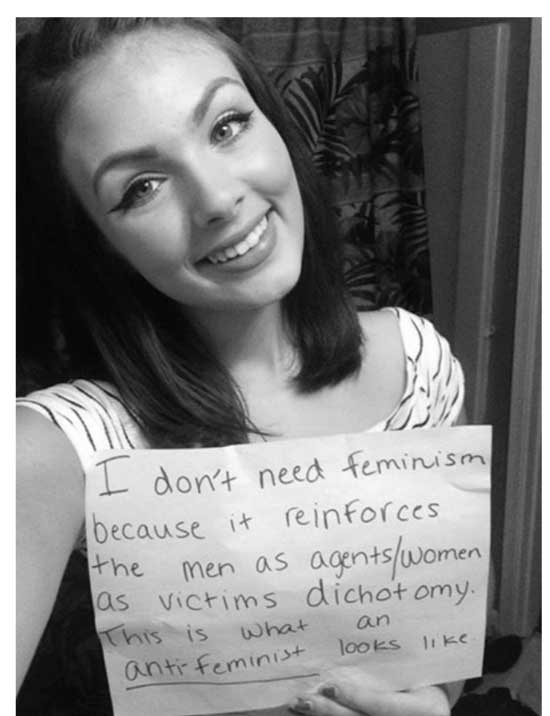 I don't need feminism
because it reinforces
the men as agents/women
as victims dichotomy.
This is what an
anti-feminist looks like.